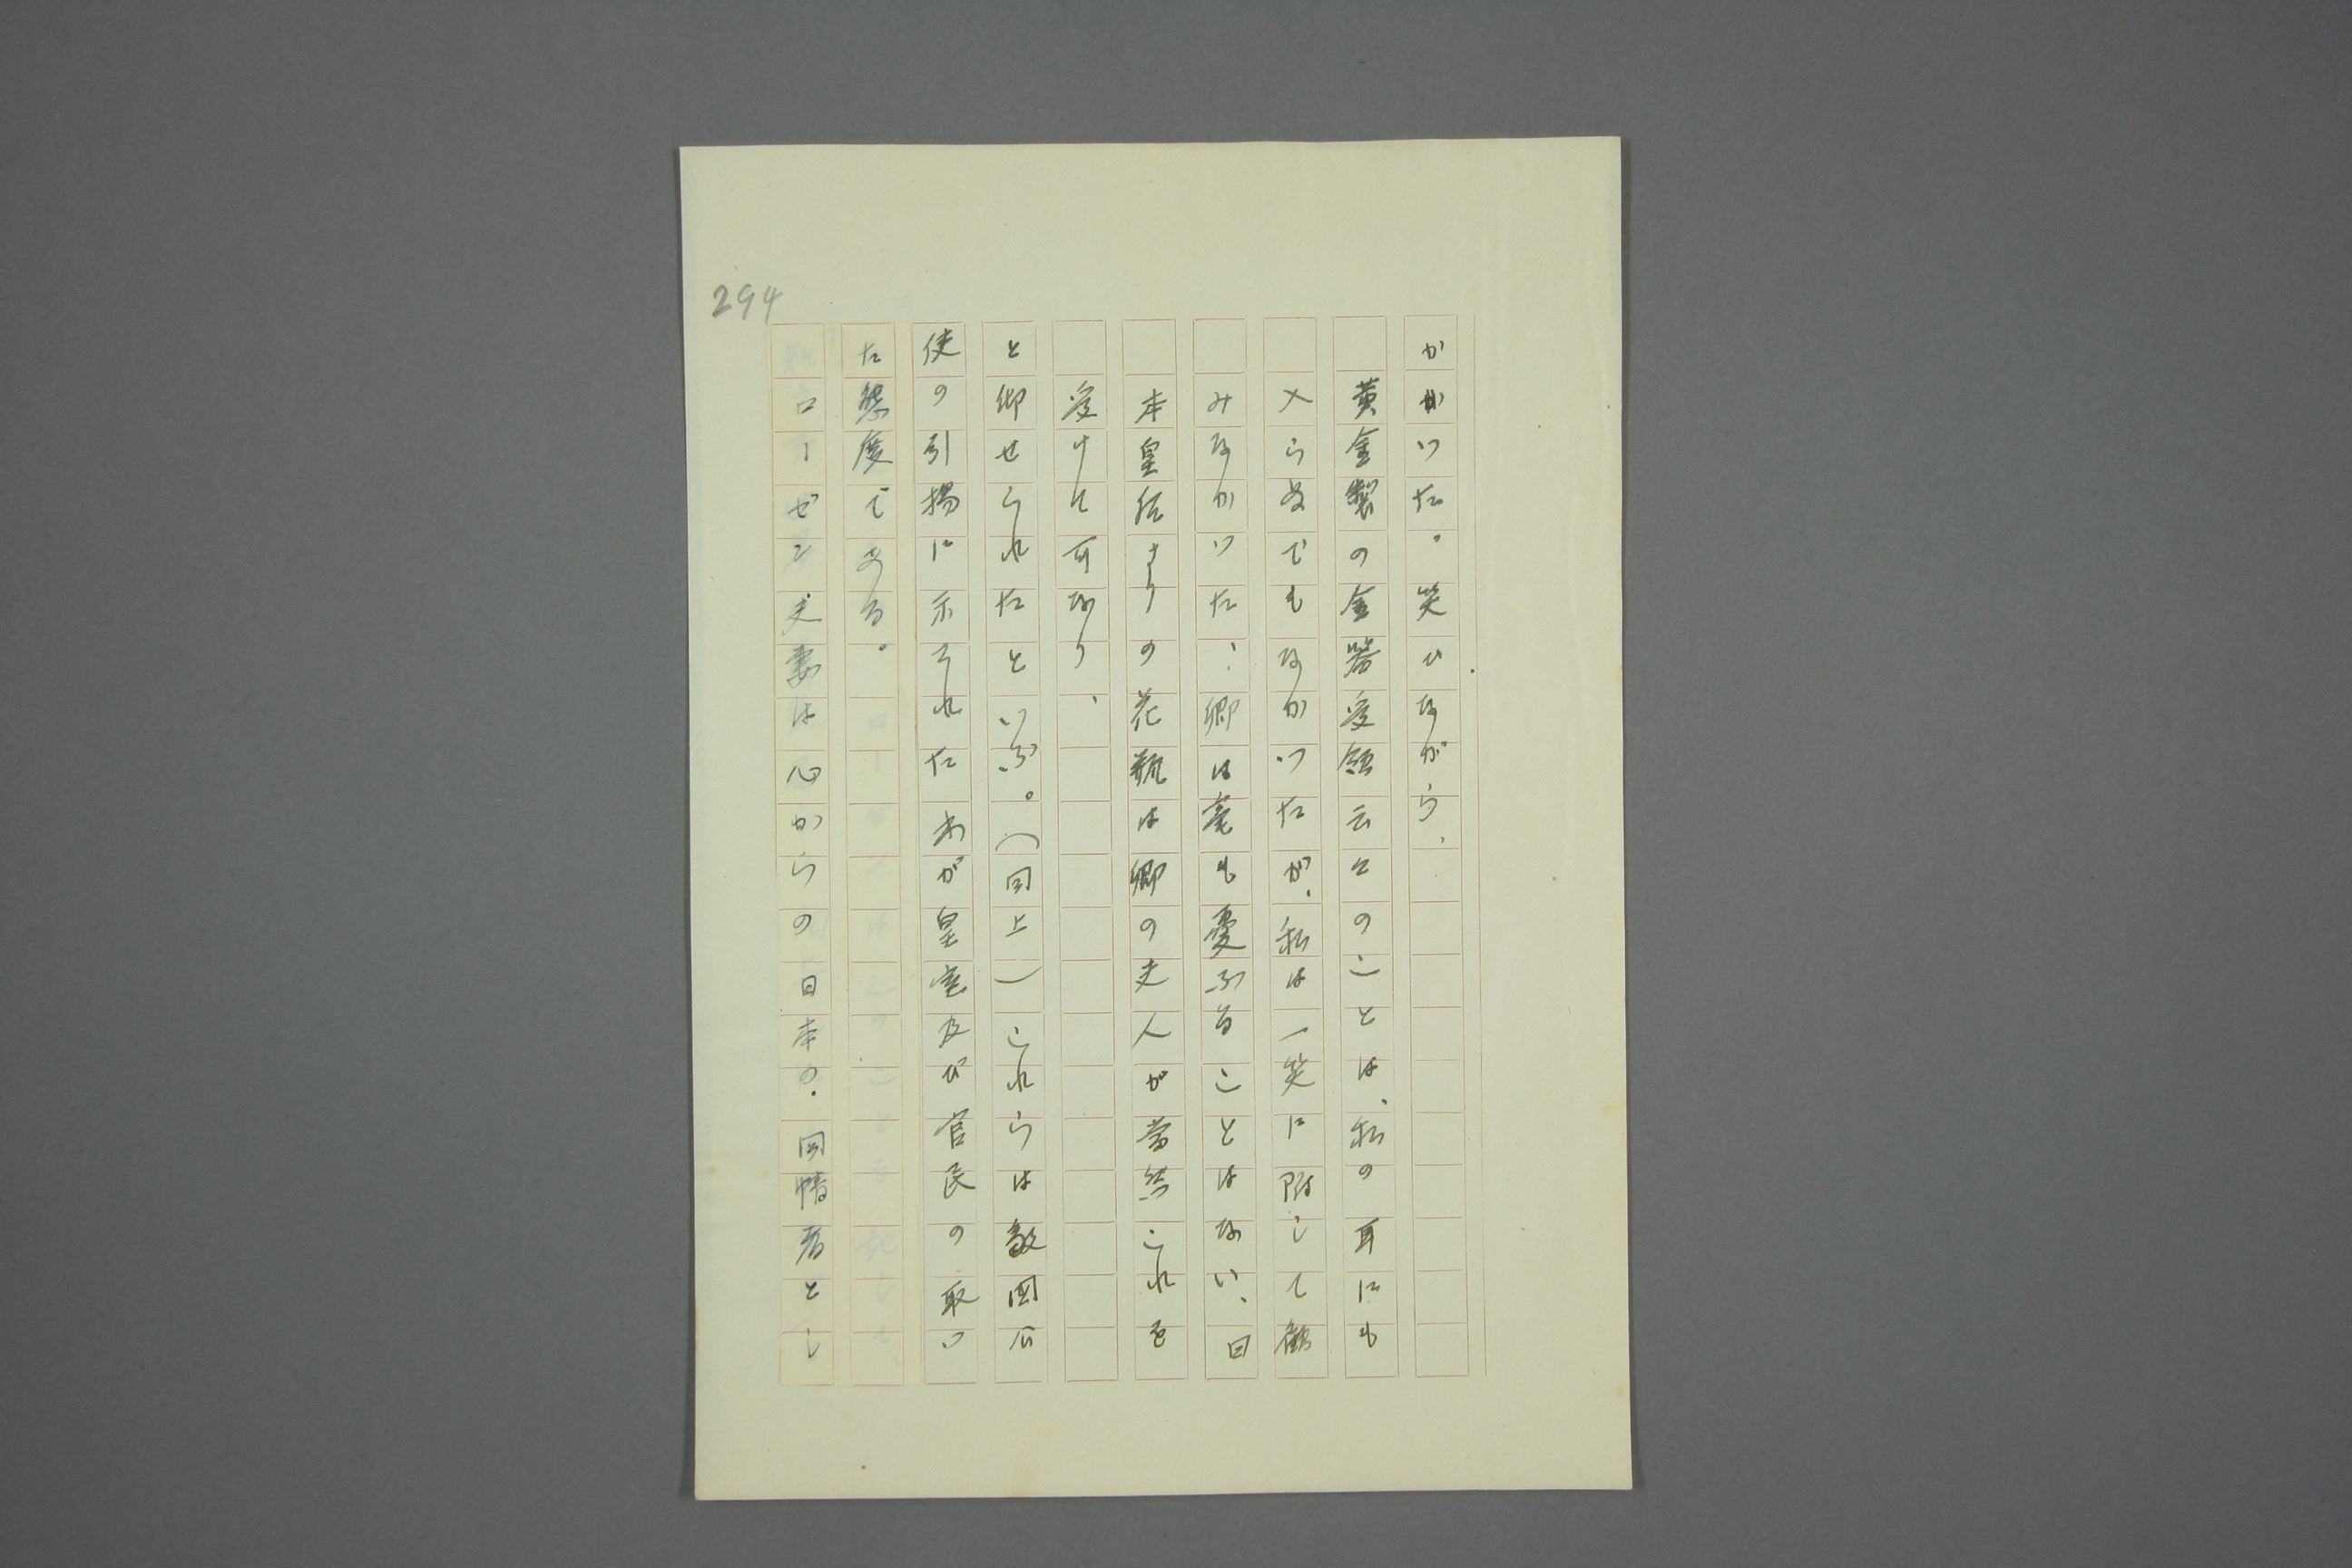 294
かかつた。笑ひながら、
黄金製の金器受領云々のことは、私の耳にも
入らぬでもなかつたが、私は一笑に附して顧
みなかつた、卿は毫も憂ふることはない、日
本皇后よりの花瓶は卿の夫人が当然これを
受けて可なり、
と仰せられたといふ。(同上)これらは敵国公
使の引揚に示された わが皇室及び官民の取つ
た態度である。
ローゼン夫妻は心からの日本の同情者とし